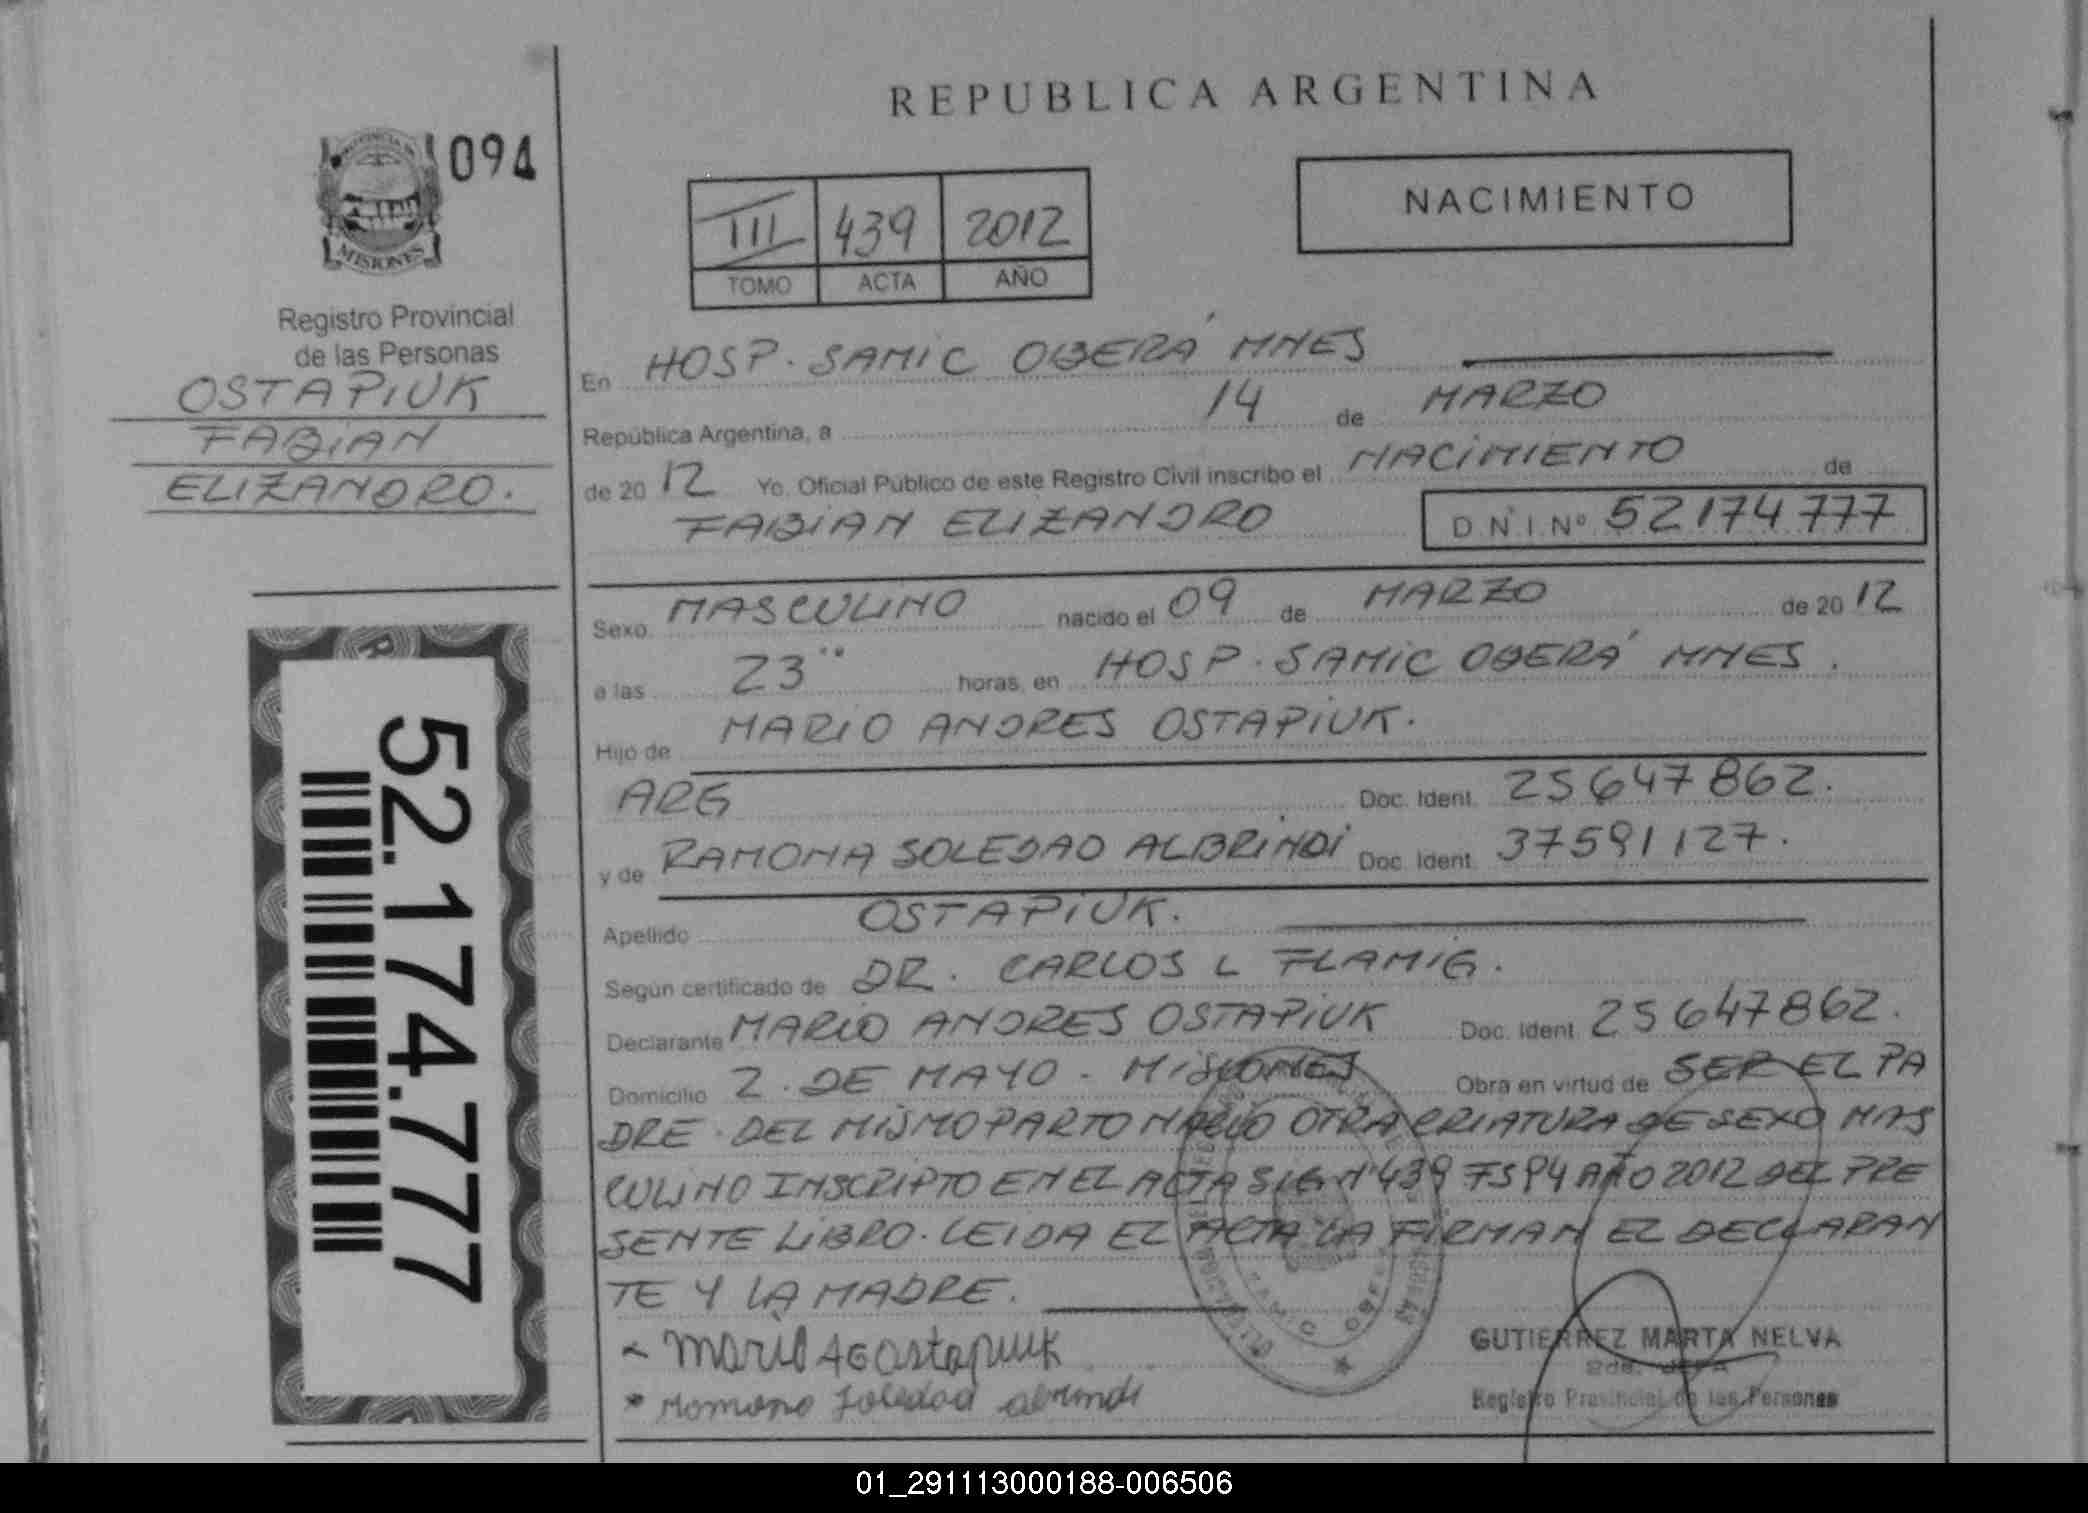 REPUBLICA ARGENTINA
094
MISIONES
Registro Provincial
de las Personas
OSTAPIUK
FABIAN
ELIZANDRO.
52.174.777
III 439 2012
TOMO ACTA AÑO
NACIMIENTO
En HOSP. SAMIC OBERÁ MNES
República Argentina, a 14 de MARZO
de 20 12 Yo. Oficial Público de este Registro Civil inscribo el NACIMIENTO de
FABIAN ELIZANDRO D.N.I.Nº 52174777
Sexo MASCULINO nacido el 09 de MARZO de 20 12
a las 23 horas, en HOSP. SAMIC OBERÁ MNES.
Hijo de MARIO ANDRES OSTAPIUK.
ARG Doc. Ident. 25647862.
y de RAMONA SOLEDAD ALBRINDI Doc. Ident. 37591127.
Apellido OSTAPIUK.
Según certificado de DR. CARLOS L FLAMIG.
Declarante MARIO ANDRES OSTAPIUK Doc. Ident. 25647862.
Domicilio 2. DE MAYO - MISIONES Obra en virtud de SER EL PA
DRE. DEL MISMO PARTO NACIO OTRA CRIATURA DE SEXO MAS
CULINO INSCRIPTO EN EL ACTA SIG Nº 439 FS 94 AÑO 2012 DEL PRE
SENTE LIBRO. LEIDA EL ACTA LA FIRMAN EL DECLARAN
TE Y LA MADRE.
Mario A Ostapiuk
Romona Soledad albrindi
GUTIERREZ MARTA NELVA
Registro Provincial de las Personas
01_291113000188-006506